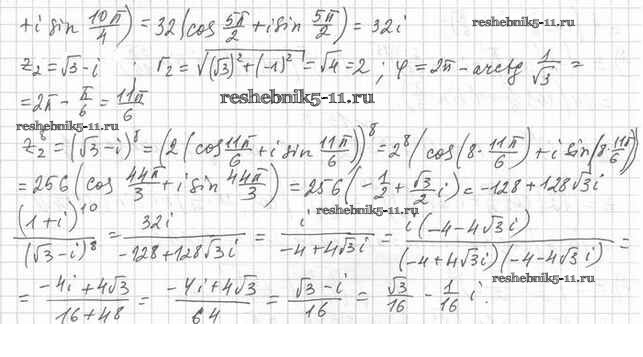 + i sin 10π/4) = 32(cos 5π/2 + i sin 5π/2) = 32i
reshebnik5-11.ru
z₂ = √3 - i ; r₂ = √((√3)² + (-1)²) = √4 = 2 ; φ = 2π - arctg 1/√3 =
= 2π - π/6 = 11π/6
reshebnik5-11.ru
reshebnik5-11.ru
z₂⁸ = (√3 - i)⁸ = (2(cos 11π/6 + i sin 11π/6))⁸ = 2⁸(cos(8·11π/6) + i sin(8·11π/6))
= 256(cos 44π/3 + i sin 44π/3) = 256(-1/2 + √3/2 i) = -128 + 128√3i
reshebnik5-11.ru
(1+i)¹⁰/(√3-i)⁸ = 32i/(-128+128√3i) = i/(-4+4√3i) = i(-4-4√3i)/((-4+4√3i)(-4-4√3i)) =
reshebnik5-11.ru
= (-4i+4√3)/(16+48) = (-4i+4√3)/64 = (√3-i)/16 = √3/16 - 1/16 i.
reshebnik5-11.ru